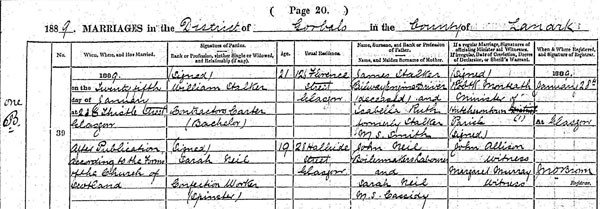 ( Page 20. )
1889. MARRIAGES in the District of Gorbals in the County of Lanark
No.
When, Where, and How Married.
Signatures of Parties.
Rank or Profession, whether Single or Widowed, and Relationship (if any).
Age.
Usual Residence.
Name, Surname, and Rank or Profession of Father.
Name, and Maiden Surname of Mother.
If a regular Marriage, Signatures of officiating Minister and Witnesses.
If irregular, Date of Conviction, Decree of Declaration, or Sheriff's Warrant.
When & Where Registered, and Signature of Registrar.
one
B.
39
1889.
on the Twenty fifth
day of January
at Thistle Street
Glasgow
After Publication
according to the Forms
of the Church of
Scotland
(Signed)
William Stalker
Contractors Carter
(Bachelor)
(Signed)
Sarah Neil
Confection Worker
(Spinster)
21
19
Florence
Street
Glasgow
28 
Street
Glasgow
James Stalker
Engine Driver
(deceased) and
Isabella
formerly Stalker
M.S. Smith
John Neil
Boilermakers Labourer
and
Sarah Neil
M.S. Cassidy
(Signed)
Minister of
Hutchesontown
Parish
(Signed)
John Allison
Witness
Margaret Murray
Witness
1889,
January 28th
at Glasgow
Registrar.